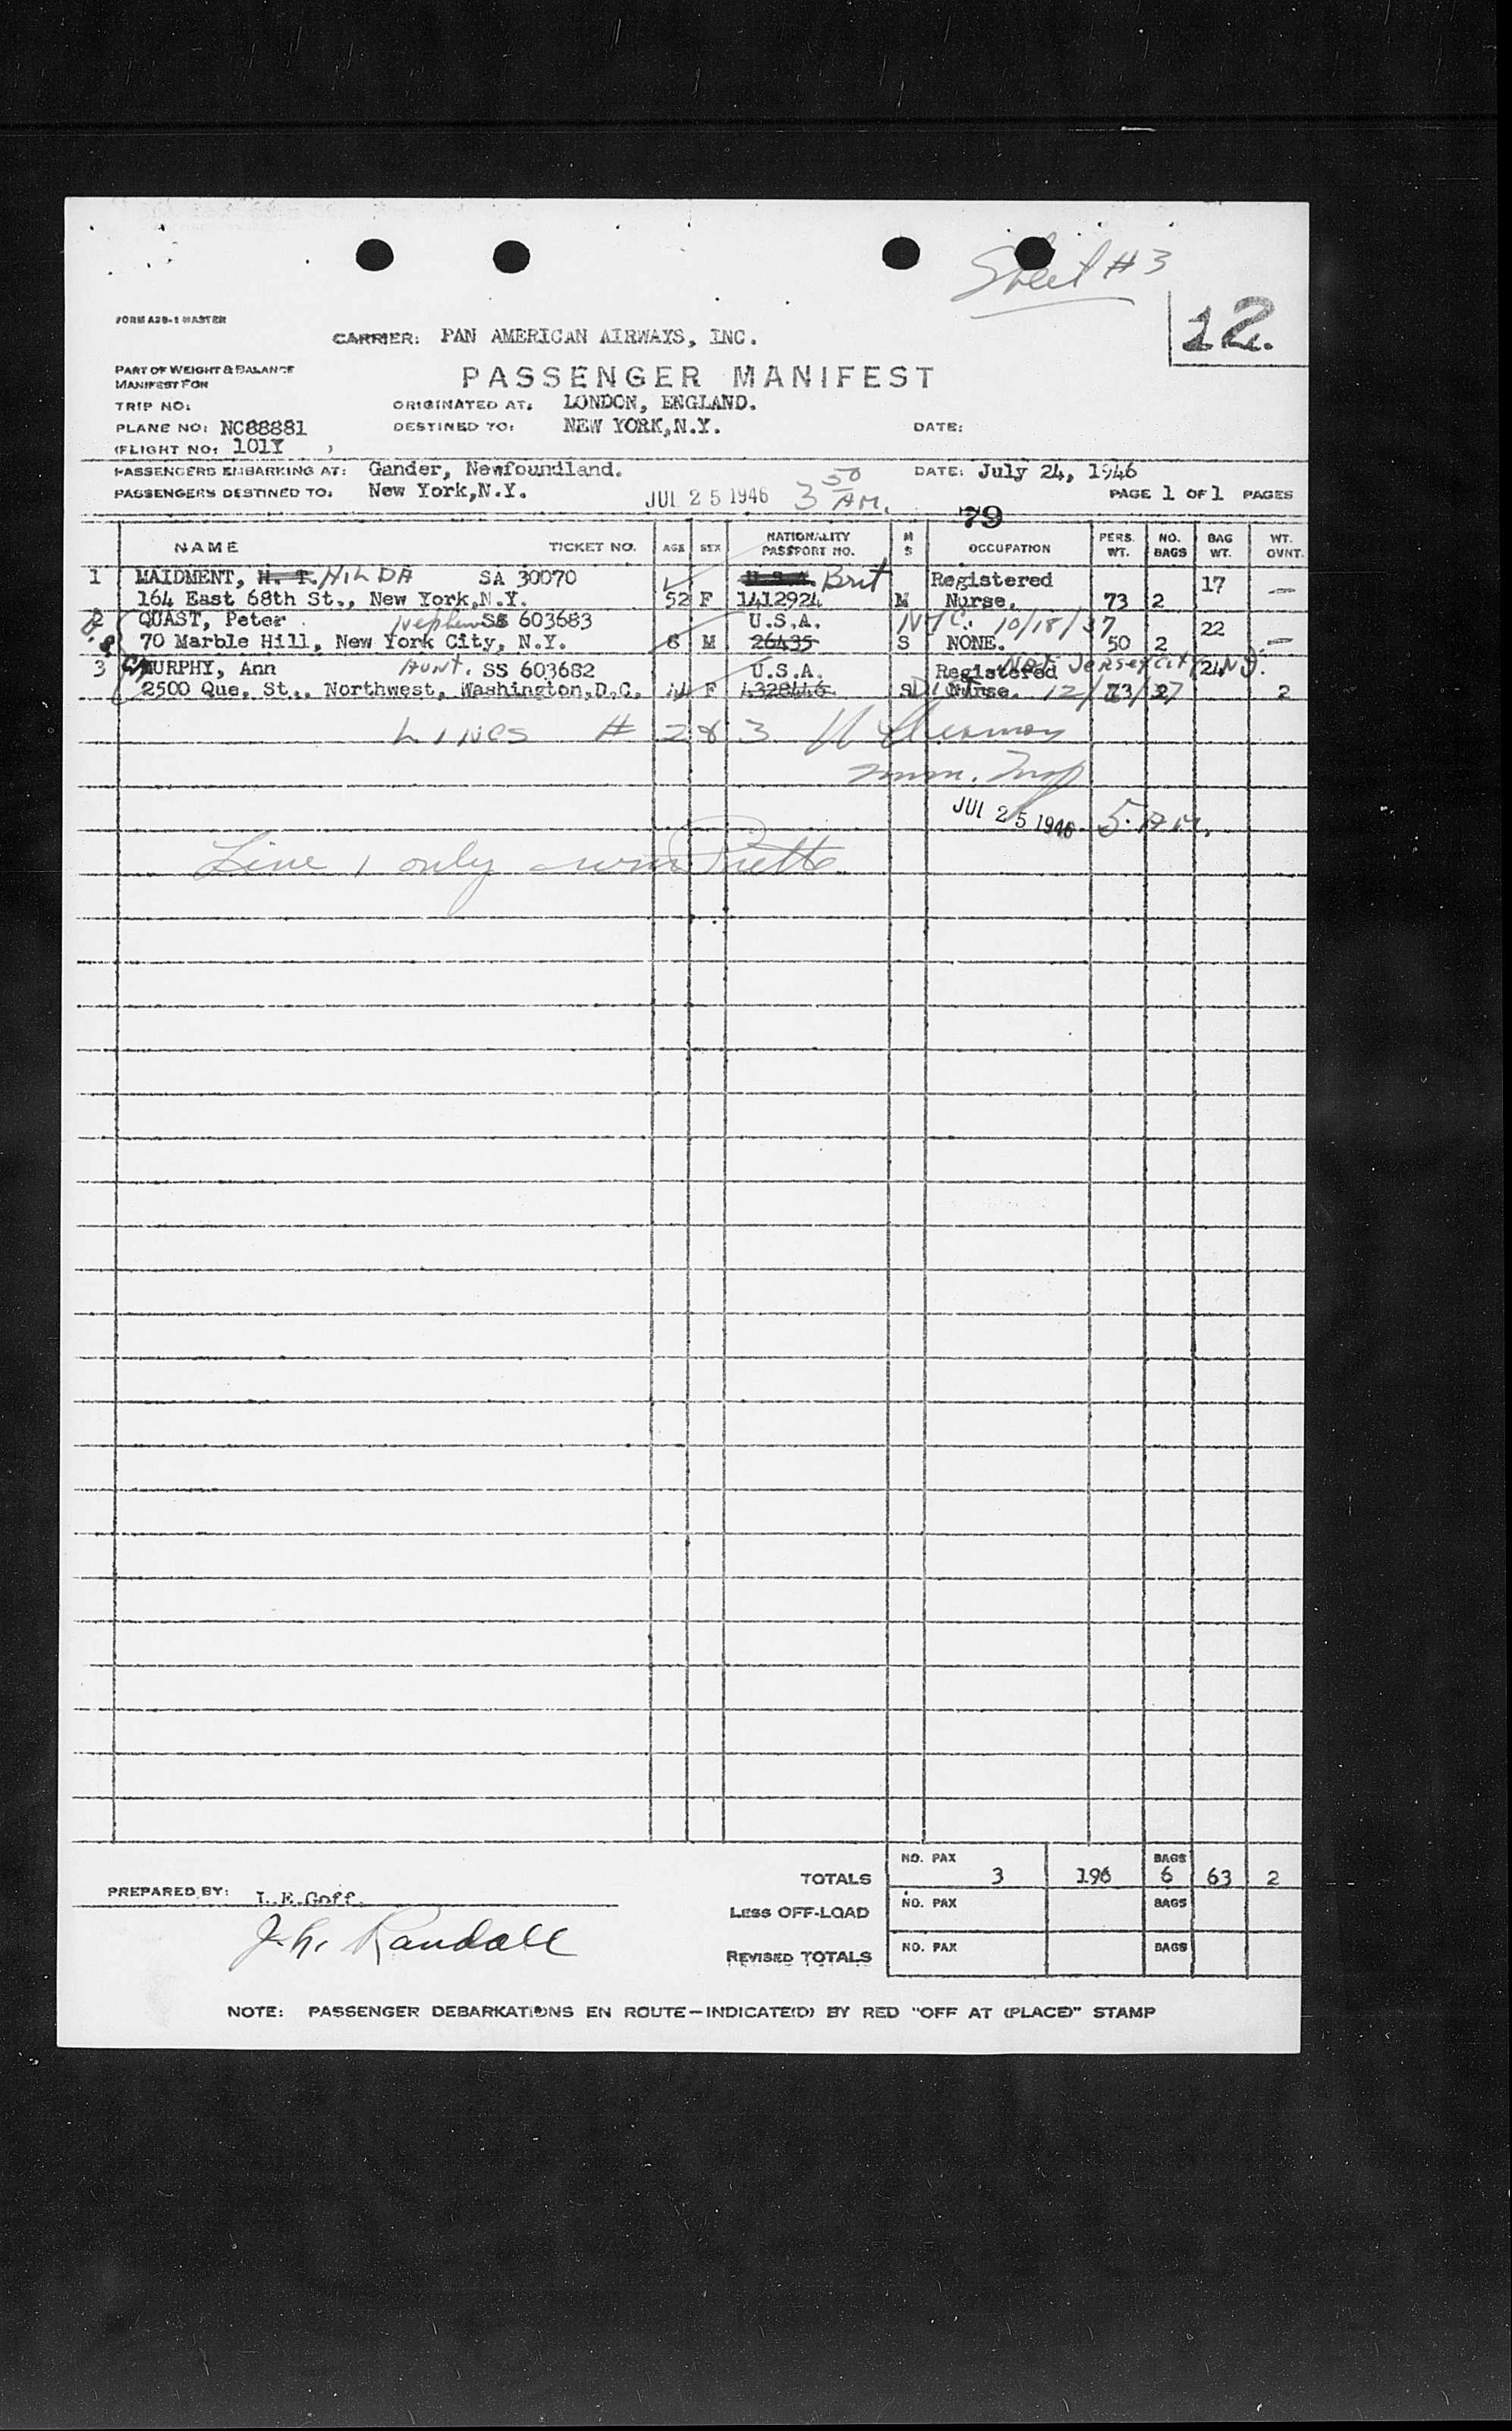 Sheet #3
12.
FORM A28-1 MASTER
CARRIER: PAN AMERICAN AIRWAYS, INC.
PART OF WEIGHT & BALANCE
MANIFEST FOR
PASSENGER MANIFEST
TRIP NO: ORIGINATED AT: LONDON, ENGLAND.
PLANE NO: NC88881 DESTINED TO: NEW YORK,N.Y. DATE:
(FLIGHT NO: 101Y )
PASSENGERS EMBARKING AT: Gander, Newfoundland. DATE: July 24, 1946
PASSENGERS DESTINED TO: New York,N.Y. JUL 25 1946 3 50 AM. PAGE 1 OF 1 PAGES
79
NAME TICKET NO. AGE SEX NATIONALITY PASSPORT NO. M S OCCUPATION PERS. WT. NO. BAGS BAG WT. WT. OVNT.
1 MAIDMENT, H. T. HILDA SA 30070 U.S.A. Brit Registered 17
164 East 68th St., New York,N.Y. 52 F 1412924 M Nurse. 73 2 —
2 QUAST, Peter nephew SS 603683 U.S.A. NYC. 10/18/37 22
70 Marble Hill, New York City, N.Y. 8 M 26435 S NONE. 50 2 —
3 MURPHY, Ann Aunt. SS 603682 U.S.A. Registered Jersey City N.J. 24
2500 Que. St., Northwest, Washington,D.C. F 4328446 S Nurse. 73 2 2
LINES # 2 & 3
Imm. Insp
JUL 25 1946 5. AM.
Line 1 only
TOTALS NO. PAX 3 196 BAGS 6 63 2
PREPARED BY: L.E.Goff.
LESS OFF-LOAD NO. PAX BAGS
J.h. Randall
REVISED TOTALS NO. PAX BAGS
NOTE: PASSENGER DEBARKATIONS EN ROUTE—INDICATE(D) BY RED "OFF AT (PLACE)" STAMP